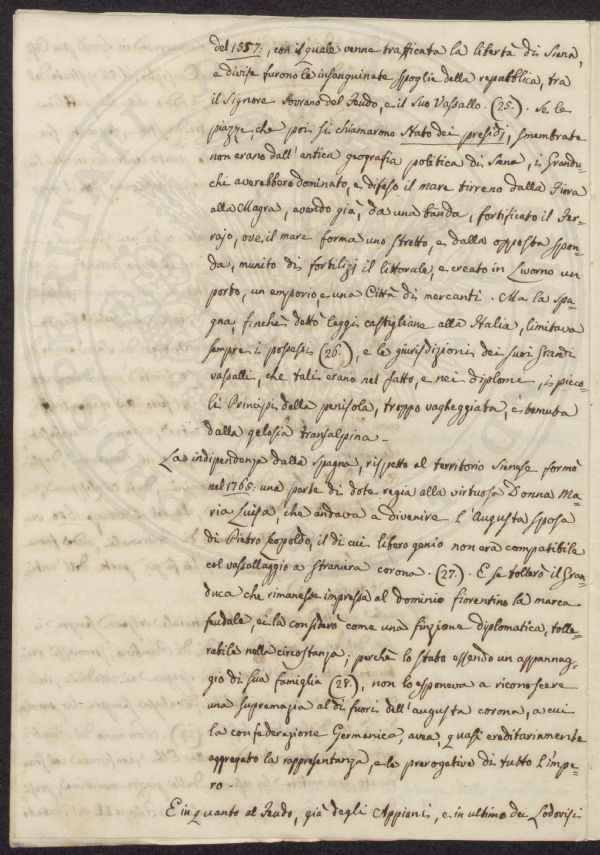 del 1557:, con il quale venne trafficata la libertà di Siena,
e divise furono le insanguinate spoglie della repubblica, tra
il Signore sovrano del Feudo, e il suo Vassallo. (25.). Se le
piazze, che poi si chiamarono Stato dei presidj, smembrate
non erano dall'antica geografia politica di Siena, i Grandu-
chi averebbero dominato, e difeso il mare tirreno dalla Fiora
alla Magra, avendo già, da una banda, fortificato il Fer-
rajo, ove il mare forma uno stretto, e dalla opposta spon-
da, munito di fortilizj il littorale, e creato in Livorno un
porto, un emporio, e una Città di mercanti. Ma la Spa-
gna, finchè dettò leggi castigliane alla Italia, limitava
sempre i possessi (26.), e le giurisdizioni dei suoi grandi
vassalli, che tali erano nel fatto, e nei diplomi, i picco-
li Principi della penisola, troppo vagheggiata, e temuta
dalla gelosia transalpina.
La indipendenza dalla Spagna, rispetto al territorio Sienese formò
nel 1765: una parte di dote regia alla virtuosa Donna Ma-
ria Luisa, che andava a divenire l'Augusta sposa
di Pietro Leopoldo, il di cui libero genio non era compatibile
col vassallaggio a straniera corona. (27.). E se tollerò il Gran-
duca che rimanesse impressa al dominio fiorentino la marca
feudale, ei la considerò come una finzione diplomatica, tolle-
rabile nella circostanza; perchè lo Stato essendo un appannag-
gio di sua famiglia (28.), non lo esponeva a riconoscere
una supremazia al di fuori dell'augusta corona, a cui
la confederazione Germanica, avea, quasi ereditariamente
aggregato la rappresentanza, e le prerogative di tutto l'impe-
ro.
E in quanto al Feudo, già degli Appiani, e in ultimo dei Lodovisi